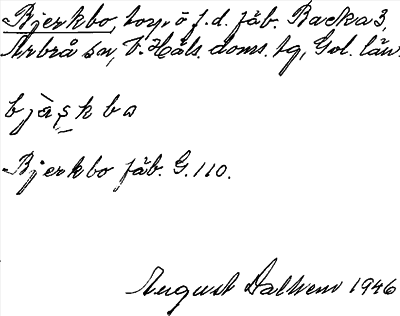 Bjerkbo, torp ö f.d. fäb. Backa 3,
Arbrå sn, V. Häls. doms. tg, Gvl. län.
bjæ̀ʂkba
Bjerkbo fäb. G.110.
August Dalhem 1946